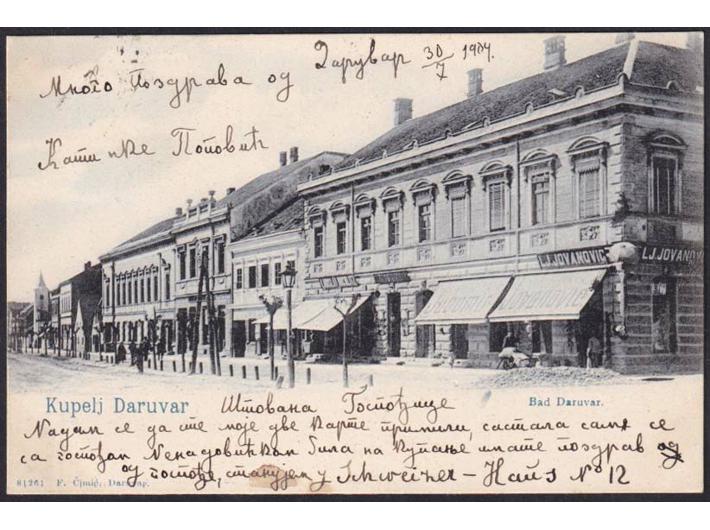 Дарувар 30/7 1904.
Много Поздрава од
Катинке Поповић
LJ.JOVANOVIC
LJ.JOVANOV
Kupelj Daruvar
Bad Daruvar.
Штована Госпођице
Надам се да сте моје две карте примили, састала сам се
са госпођом Ненадовићком била на купање имате поздрав од
од госпође, станујем у Schweizer - Haus № 12
81261 F. Čjmić, Daruvar.